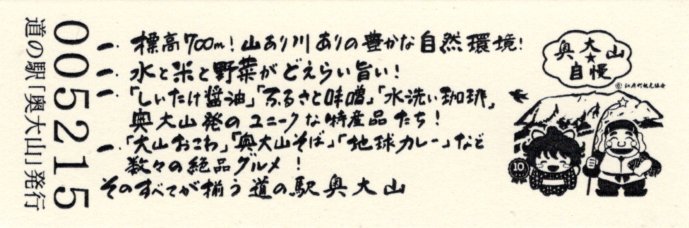 道の駅「奥大山」発行
005215
一、標高700m！山あり川ありの豊かな自然環境！
一、水と米と野菜がどえらい旨い！
一、「しいたけ醤油」「ふるさと味噌」「水洗い珈琲」
奥大山発のユニークな特産品たち！
一、「大山おこわ」「奥大山そば」「地球カレー」など
数々の絶品グルメ！
そのすべてが揃う道の駅奥大山
奥大山
★
自慢
©江府町観光協会
10